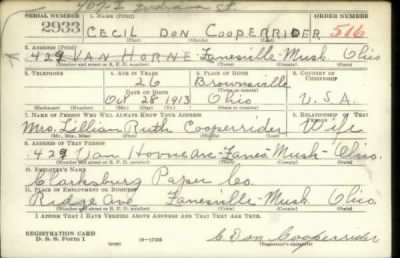 409-I Indiana St.
SERIAL NUMBER 1. NAME (Print) ORDER NUMBER
2933 CECIL DON COOPERRIDER 516
(First) (Middle) (Last)
2. ADDRESS (Print)
429 VAN HORNE Zanesville - Musk. Ohio
(Number and street or R. F. D. number) (Town) (County) (State)
3. TELEPHONE 4. AGE IN YEARS 5. PLACE OF BIRTH 6. COUNTRY OF CITIZENSHIP
26 Brownsville
DATE OF BIRTH (Town or county)
Oct 28 1913 Ohio U.S.A.
(Exchange) (Number) (Mo.) (Day) (Yr.) (State or country)
7. NAME OF PERSON WHO WILL ALWAYS KNOW YOUR ADDRESS 8. RELATIONSHIP OF THAT PERSON
Mrs. Lillian Ruth Cooperrider Wife
(Mr., Mrs., Miss) (First) (Middle) (Last)
9. ADDRESS OF THAT PERSON
429 Van Horne Ave - Zanes - Musk - Ohio.
(Number and street or R. F. D. number) (Town) (County) (State)
10. EMPLOYER'S NAME
Clarksburg Paper Co.
11. PLACE OF EMPLOYMENT OR BUSINESS
Ridge Ave Zanesville - Musk. Ohio
(Number and street or R. F. D. number) (Town) (County) (State)
I AFFIRM THAT I HAVE VERIFIED ABOVE ANSWERS AND THAT THEY ARE TRUE.
REGISTRATION CARD
D. S. S. Form 1 C Don Cooperrider
(Registrant's signature)